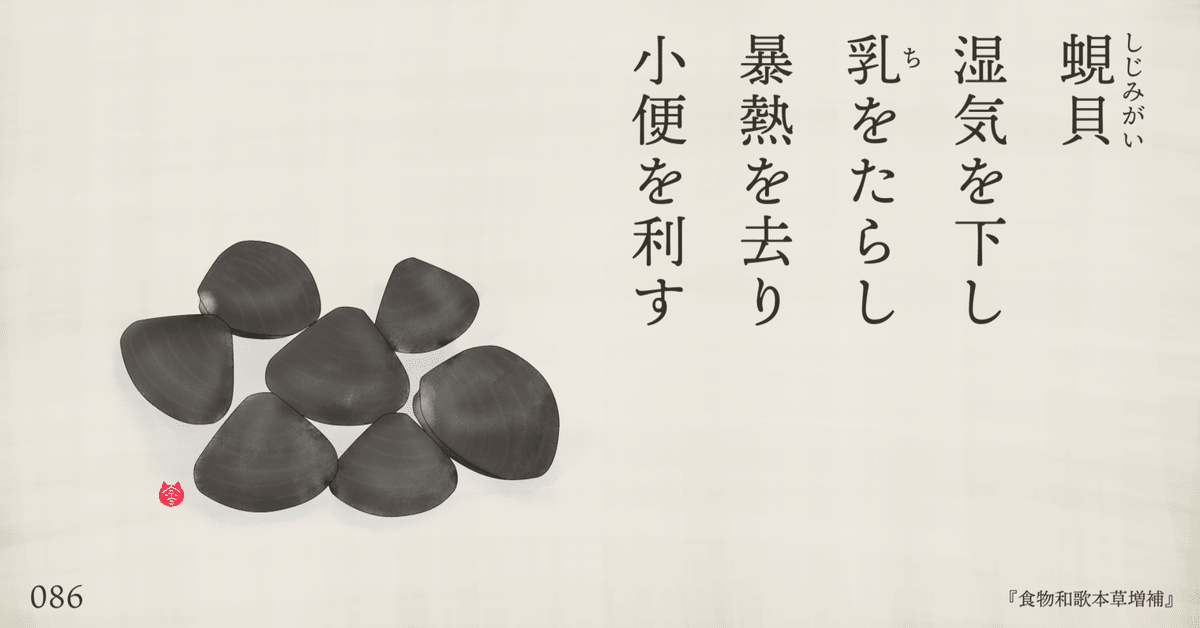 蜆貝
しじみがい
湿気を下し
乳をたらし
ち
暴熱を去り
小便を利す
086
『食物和歌本草増補』